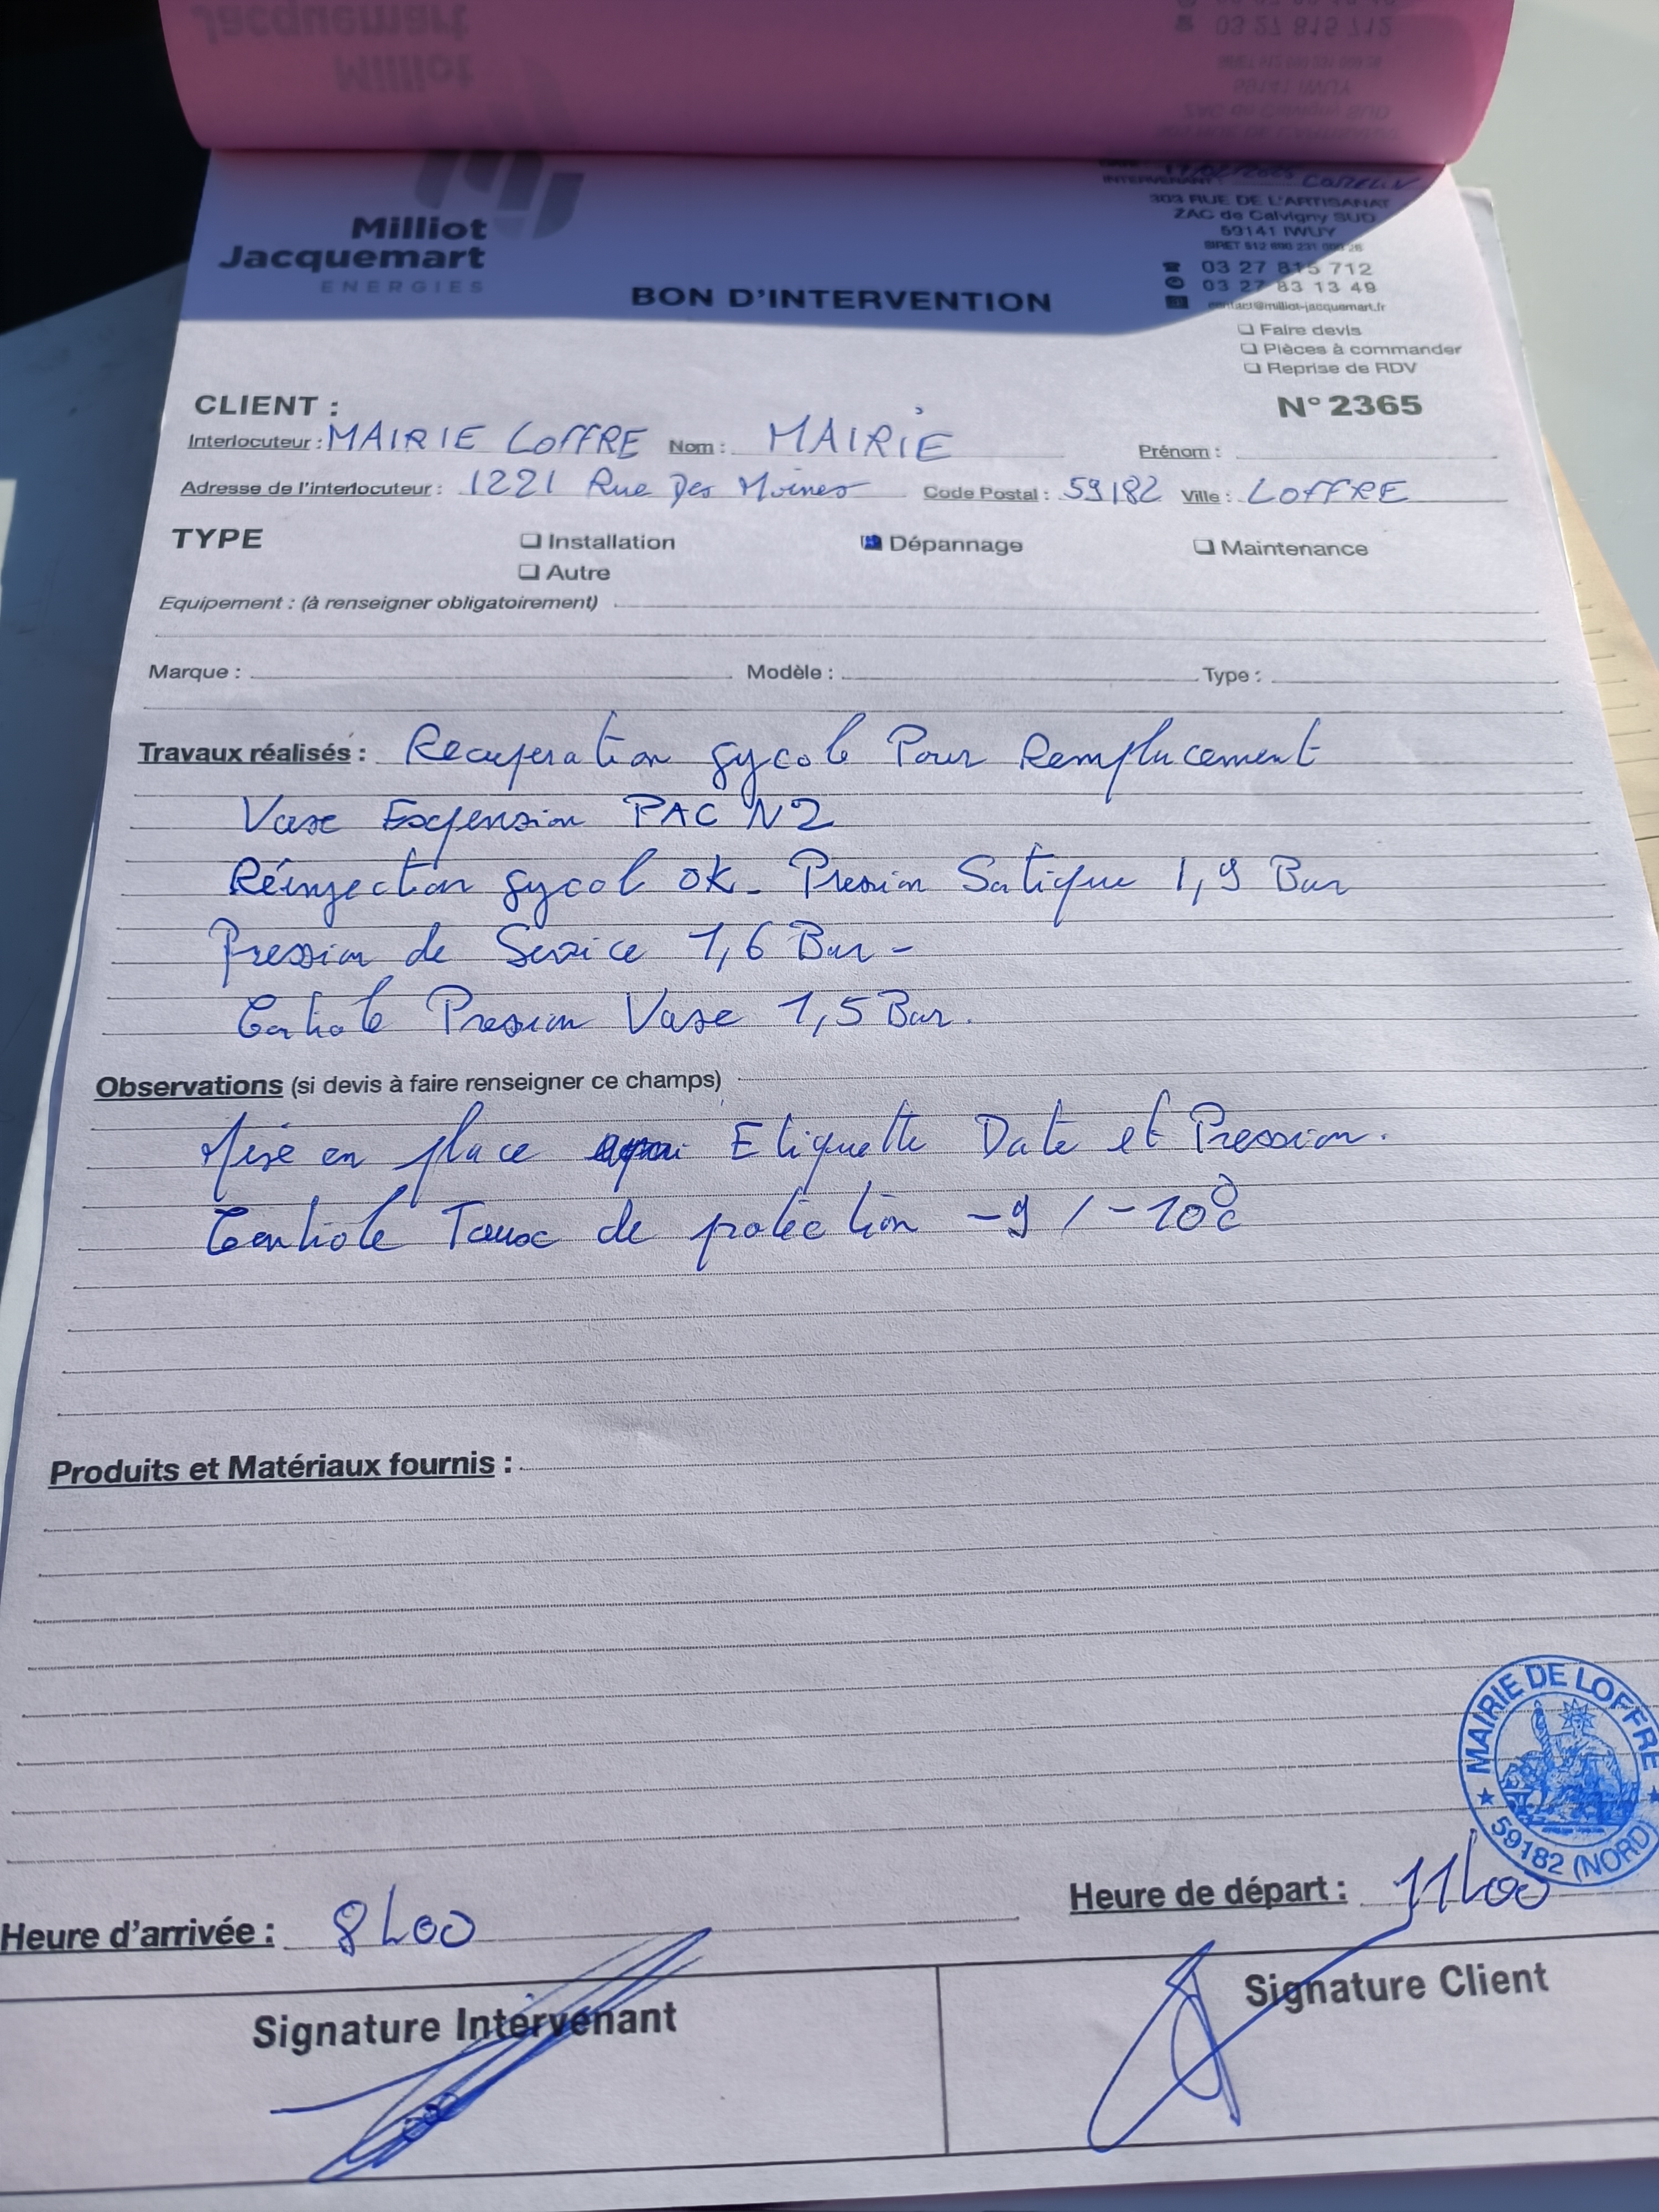 Milliot
Jacquemart
ENERGIES
BON D'INTERVENTION
INTERVENANT :
303 RUE DE L'ARTISANAT
ZAC de Calvigny SUD
59141 IWUY
03 27 815 712
03 27 83 13 49
contact@milliot-jacquemart.fr
Faire devis
Pièces à commander
Reprise de RDV
N° 2365
CLIENT :
Interlocuteur : MAIRIE LOFFRE Nom : MAIRIE Prénom :
Adresse de l'interlocuteur : 1221 Rue Des Moines Code Postal : 59182 Ville : LOFFRE
TYPE
Installation Dépannage Maintenance
Autre
Equipement : (à renseigner obligatoirement)
Marque : Modèle : Type :
Travaux réalisés : Recuperation gycole Pour Remplacement
Vase Expension PAC N2
Réinjection gycol OK - Pression Satique 1,9 Bar
Pression de Service 1,6 Bar -
Controle Pression Vase 1,5 Bar.
Observations (si devis à faire renseigner ce champs)
Mise en place Etiquette Date et Pression.
Controle Taux de protection -9 / -10°c
Produits et Matériaux fournis :
MAIRIE DE LOFFRE
59182 (NORD)
Heure d'arrivée : 8h00
Heure de départ : 11h00
Signature Intervenant
Signature Client